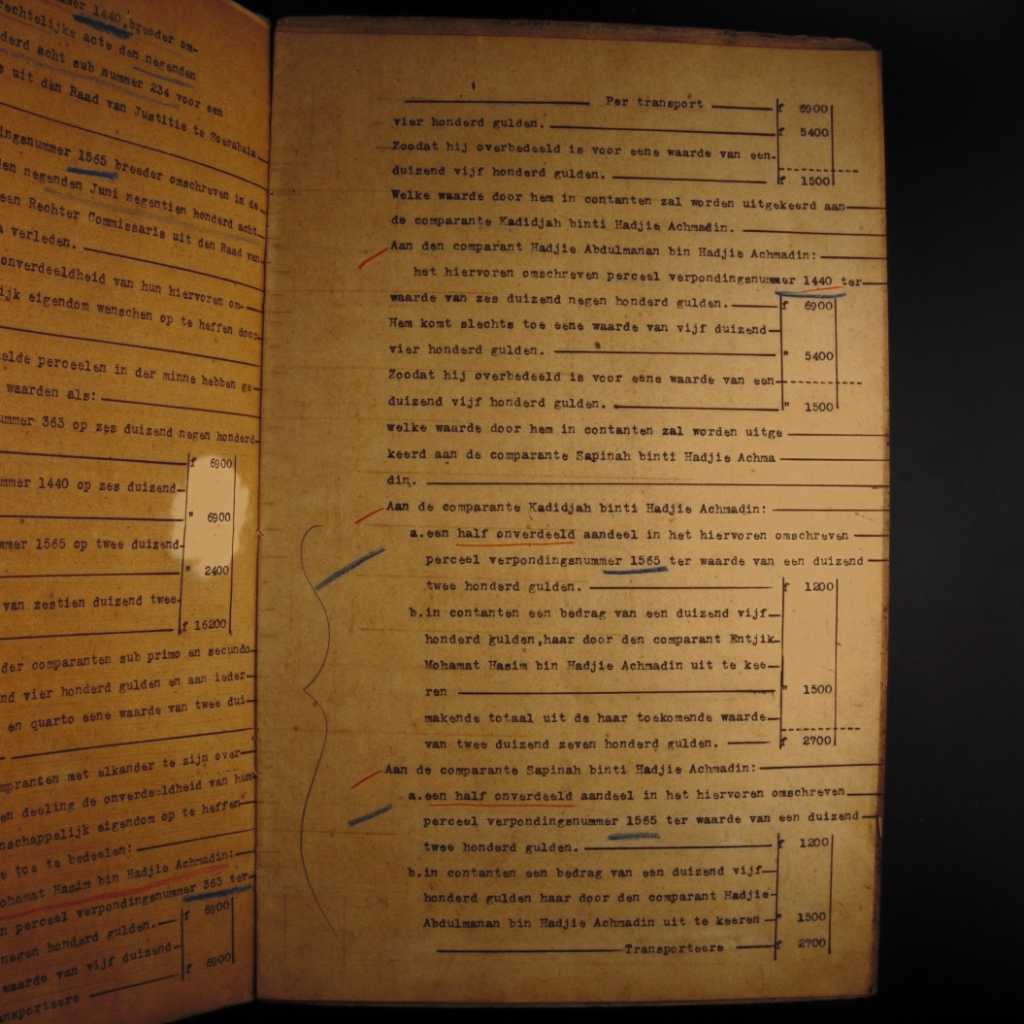 mer 1440, breeder om-
rechtelijke acte den negenden
derd acht sub nummer 234 voor een
uit den Raad van Justitie te Soerabaia.
ingsnummer 1565 breeder omschreven in de
en negenden Juni negentien honderd acht
een Rechter Commissaris uit den Raad van
verleden.
onverdeeldheid van hun hiervoren om-
ijk eigendom wenschen op te heffen door
elde perceelen in der minne hebben ge-
waarden als:
ummer 363 op zes duizend negen honderd
f 6900
mmer 1440 op zes duizend
" 6900
mmer 1565 op twee duizend
" 2400
van zestien duizend twee
f 16200
der comparanten sub primo en secundo
nd vier honderd gulden en aan ieder
en quarto eene waarde van twee dui-
mpranten met elkander te zijn over-
en deeling de onverdeeldheid van hun
nschappelijk eigendom op te heffen
e toe te bedeelen:
ohamat Hasim bin Hadjie Achmadin:
n perceel verpondingsnummer 363 ter
negen honderd gulden. f 6900
waarde van vijf duizend
f 6900
ansporteere
Per transport f 6900
vier honderd gulden. f 5400
Zoodat hij overbedeeld is voor eene waarde van een
duizend vijf honderd gulden. f 1500
Welke waarde door hem in contanten zal worden uitgekeerd aan
de comparante Kadidjah binti Hadjie Achmadin.
Aan den comparant Hadjie Abdulmanan bin Hadjie Achmadin:
het hiervoren omschreven perceel verpondingsnummer 1440 ter
waarde van zes duizend negen honderd gulden. f 6900
Hem komt slechts toe eene waarde van vijf duizend
vier honderd gulden. " 5400
Zoodat hij overbedeeld is voor eene waarde van een
duizend vijf honderd gulden. " 1500
welke waarde door hem in contanten zal worden uitge
keerd aan de comparante Sapinah binti Hadjie Achma
din.
Aan de comparante Kadidjah binti Hadjie Achmadin:
a.een half onverdeeld aandeel in het hiervoren omschreven
perceel verpondingsnummer 1565 ter waarde van een duizend
twee honderd gulden. f 1200
b.in contanten een bedrag van een duizend vijf
honderd gulden,haar door den comparant Entjik
Mohamat Hasim bin Hadjie Achmadin uit te kee-
ren " 1500
makende totaal uit de haar toekomende waarde
van twee duizend zeven honderd gulden. f 2700
Aan de comparante Sapinah binti Hadjie Achmadin:
a.een half onverdeeld aandeel in het hiervoren omschreven
perceel verpondingsnummer 1565 ter waarde van een duizend
twee honderd gulden. f 1200
b.in contanten een bedrag van een duizend vijf
honderd gulden haar door den comparant Hadjie
Abdulmanan bin Hadjie Achmadin uit te keeren " 1500
Transporteere f 2700